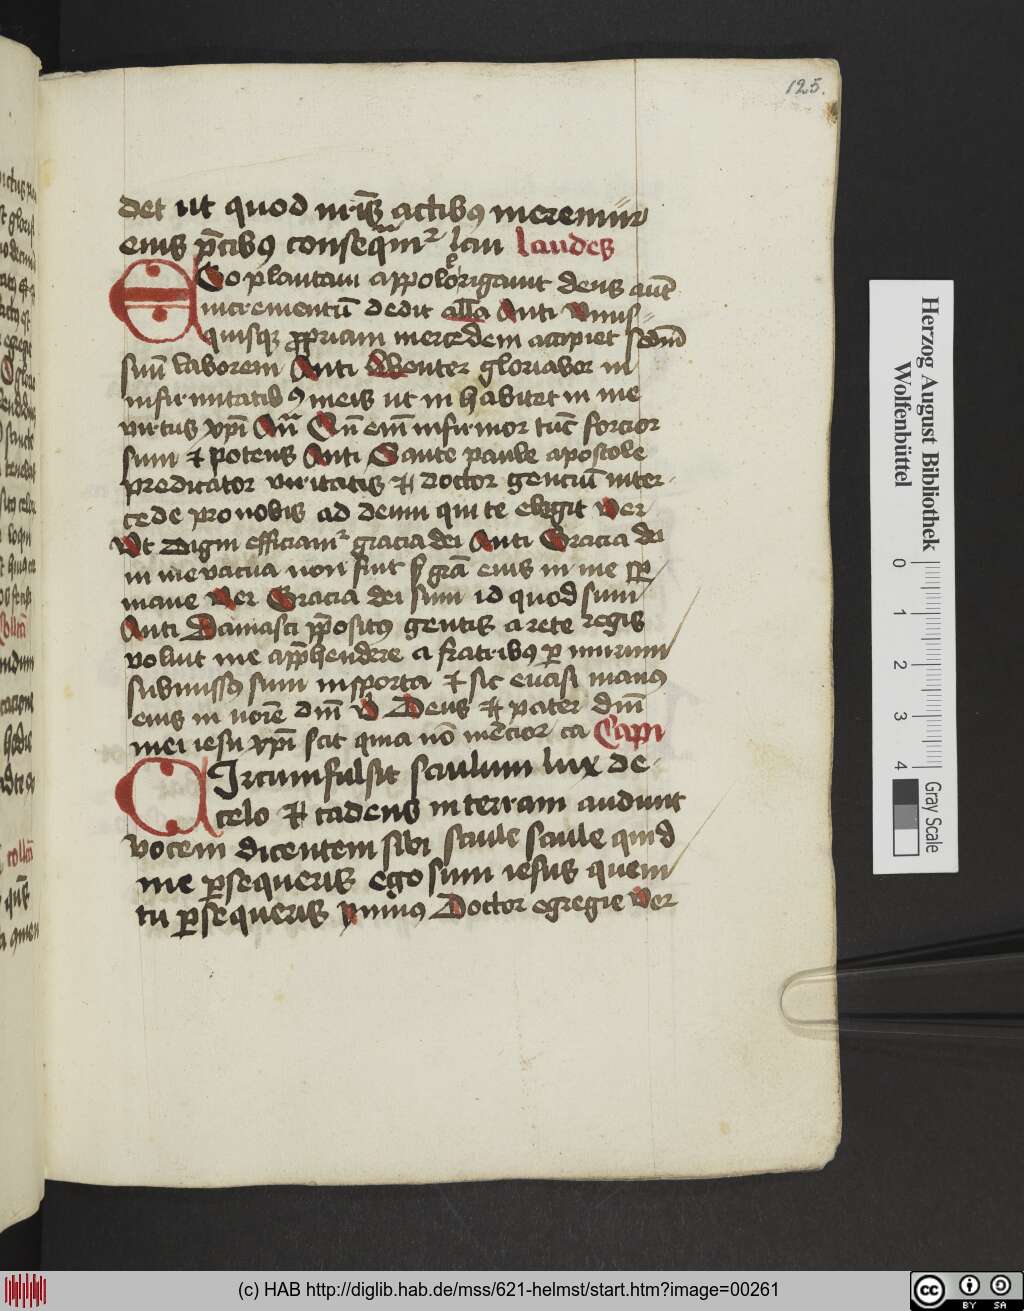 125.
det ut quod nr̄is actibus meremur
eius p̄cibus conseqm̄r lau laudes
Ego plantaui appollo rigauit deus aut̄
incrementū dedit alla Anti Vnus-
quisque propriam mercedem accipiet sedm̄
suū laborem Anti libenter gloriabor in
infirmitatibus meis ut inhabitet in me
virtus xp̄i An̄ Cū em̄ infirmor tūc forcior
sum et potens Anti Sancte paule apostole
predicator viritatis et doctor genciū inter-
cede pro nobis ad deum qui te elegit Ver
Vt digni efficiam̄r gracia dei Anti Gracia dei
in me vacua non fuit s grā eius in me ꝑ
mane Ver Gracia dei sum id quod sum
Anti Damasci p̄positus gentis arete regis
voluit me app̄hendere a fratribus per murum
submissus sum in sporta et sic euasi manus
eius in noīe dn̄i V Deus et pater dn̄i
mei iesu xp̄i scit quia nō mēcior ca Capi
Circumfulsit saulum lux de
celo et cadens in terram audiuit
vocem dicentem sibi saule saule quid
me persequeris ego sum iesus quem
tu persequeris ymnus Doctor egregie Ver
Herzog August Bibliothek
Wolfenbüttel
0 1 2 3 4
Gray Scale
(c) HAB http://diglib.hab.de/mss/621-helmst/start.htm?image=00261
cc BY SA